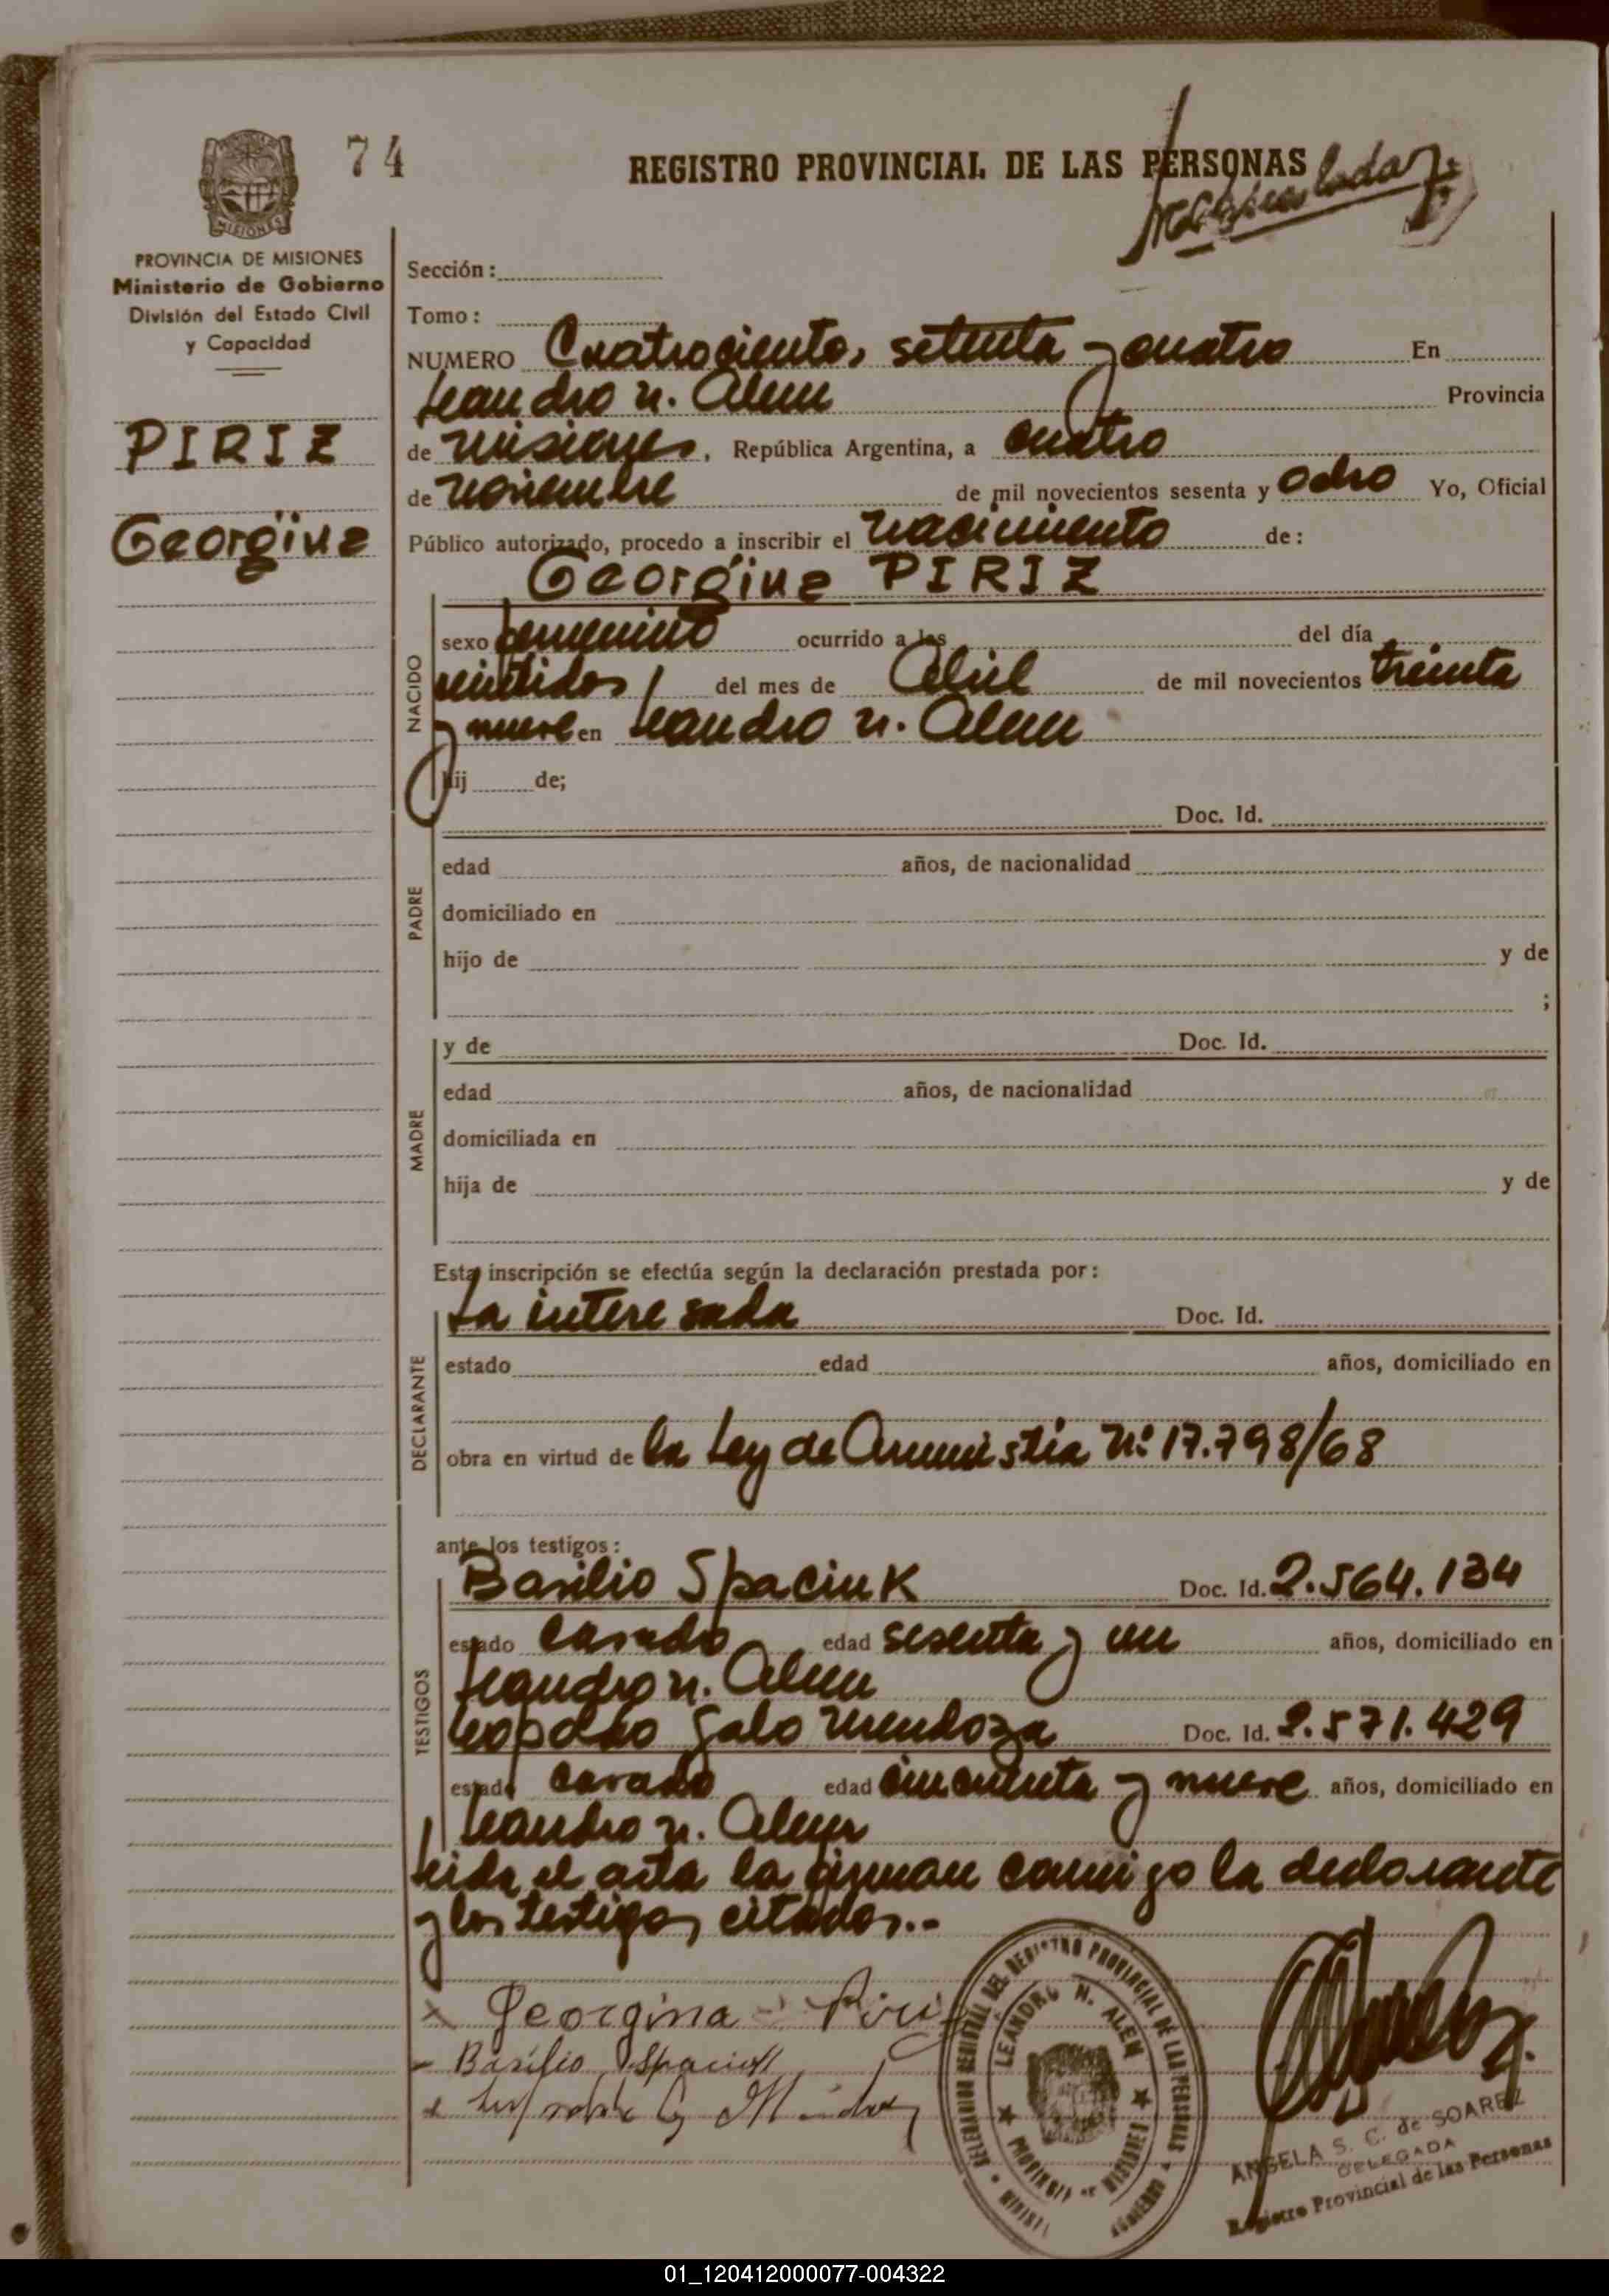 74
REGISTRO PROVINCIAL DE LAS PERSONAS
PROVINCIA DE MISIONES
Ministerio de Gobierno
División del Estado Civil
y Capacidad
PIRIZ
Georgina
Sección:
Tomo:
NUMERO Cuatrocientos setenta y cuatro En
Leandro N. Alem Provincia
de Misiones, República Argentina, a cuatro
de noviembre de mil novecientos sesenta y ocho Yo, Oficial
Público autorizado, procedo a inscribir el nacimiento de:
Georgina PIRIZ
NACIDO
sexo femenino ocurrido a las del día
veintidos del mes de Abril de mil novecientos treinta
y nueve en Leandro N. Alem
hij de;
Doc. Id.
PADRE
edad años, de nacionalidad
domiciliado en
hijo de y de
;
MADRE
y de Doc. Id.
edad años, de nacionalidad
domiciliada en
hija de y de
Esta inscripción se efectúa según la declaración prestada por:
DECLARANTE
La interesada Doc. Id.
estado edad años, domiciliado en
obra en virtud de la Ley de Amnistia Nº 17.798/68
ante los testigos:
TESTIGOS
Basilio Spaciuk Doc. Id. 2.564.134
estado casado edad sesenta y un años, domiciliado en
Leandro N. Alem
Leopoldo Galo Mendoza Doc. Id. 2.571.429
estado casado edad cincuenta y nueve años, domiciliado en
Leandro N. Alem
Leida el acta la firman conmigo la declarante
y los testigos citados.-
x Georgina Piriz
Basilio Spaciuk
LEANDRO N. ALEM
PROVINCIA DE MISIONES
ANGELA S. C. de SOAREZ
DELEGADA
Registro Provincial de las Personas
01_120412000077-004322